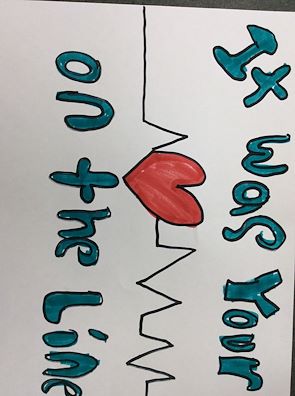 It was Your
on the Line